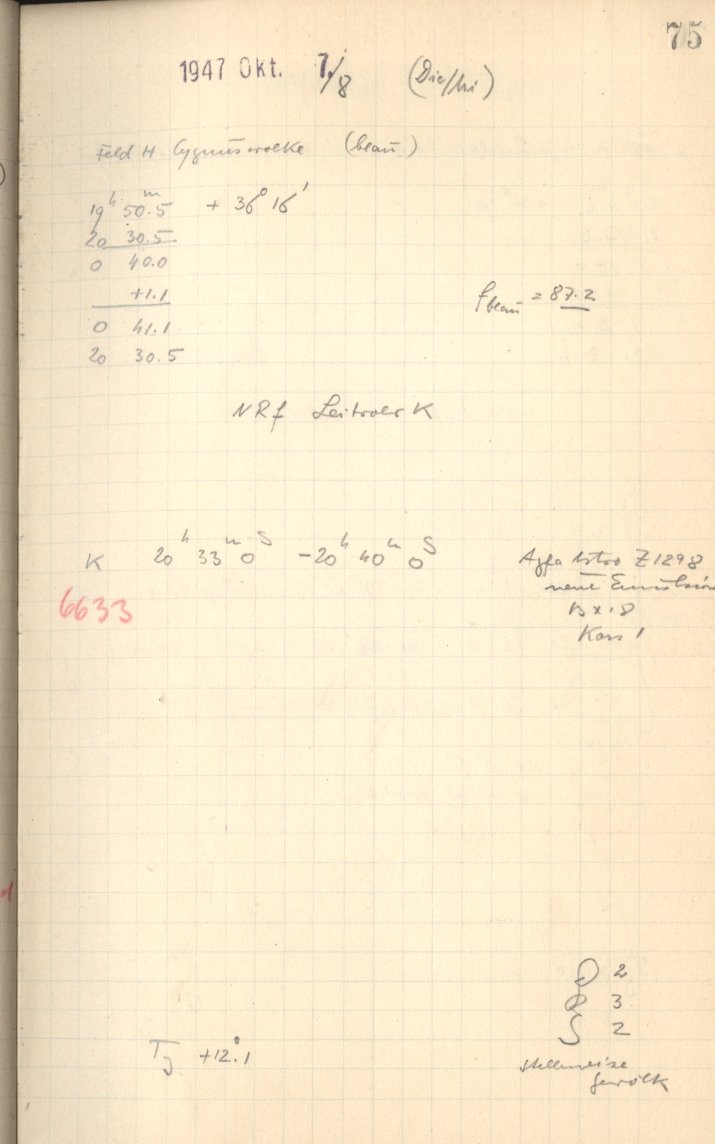 75
1947 Okt. 7./8 (Die/hi)
Feld H Cygnuswolke (blau)
19ʰ 50.5ᵐ + 36° 16'
20 30.5
0 40.0
+1.1
0 41.1
20 30.5
f blau = 87.2
NRf Leitrohr K
K 20ʰ 33ᵐ 0ˢ – 20ʰ 40ᵐ 0ˢ
Agfa Astro Z1298
neue Emulsion
13 x 18
Kass 1
6633
2
3
S 2
stellenweise
Gewölk
T +12.°1